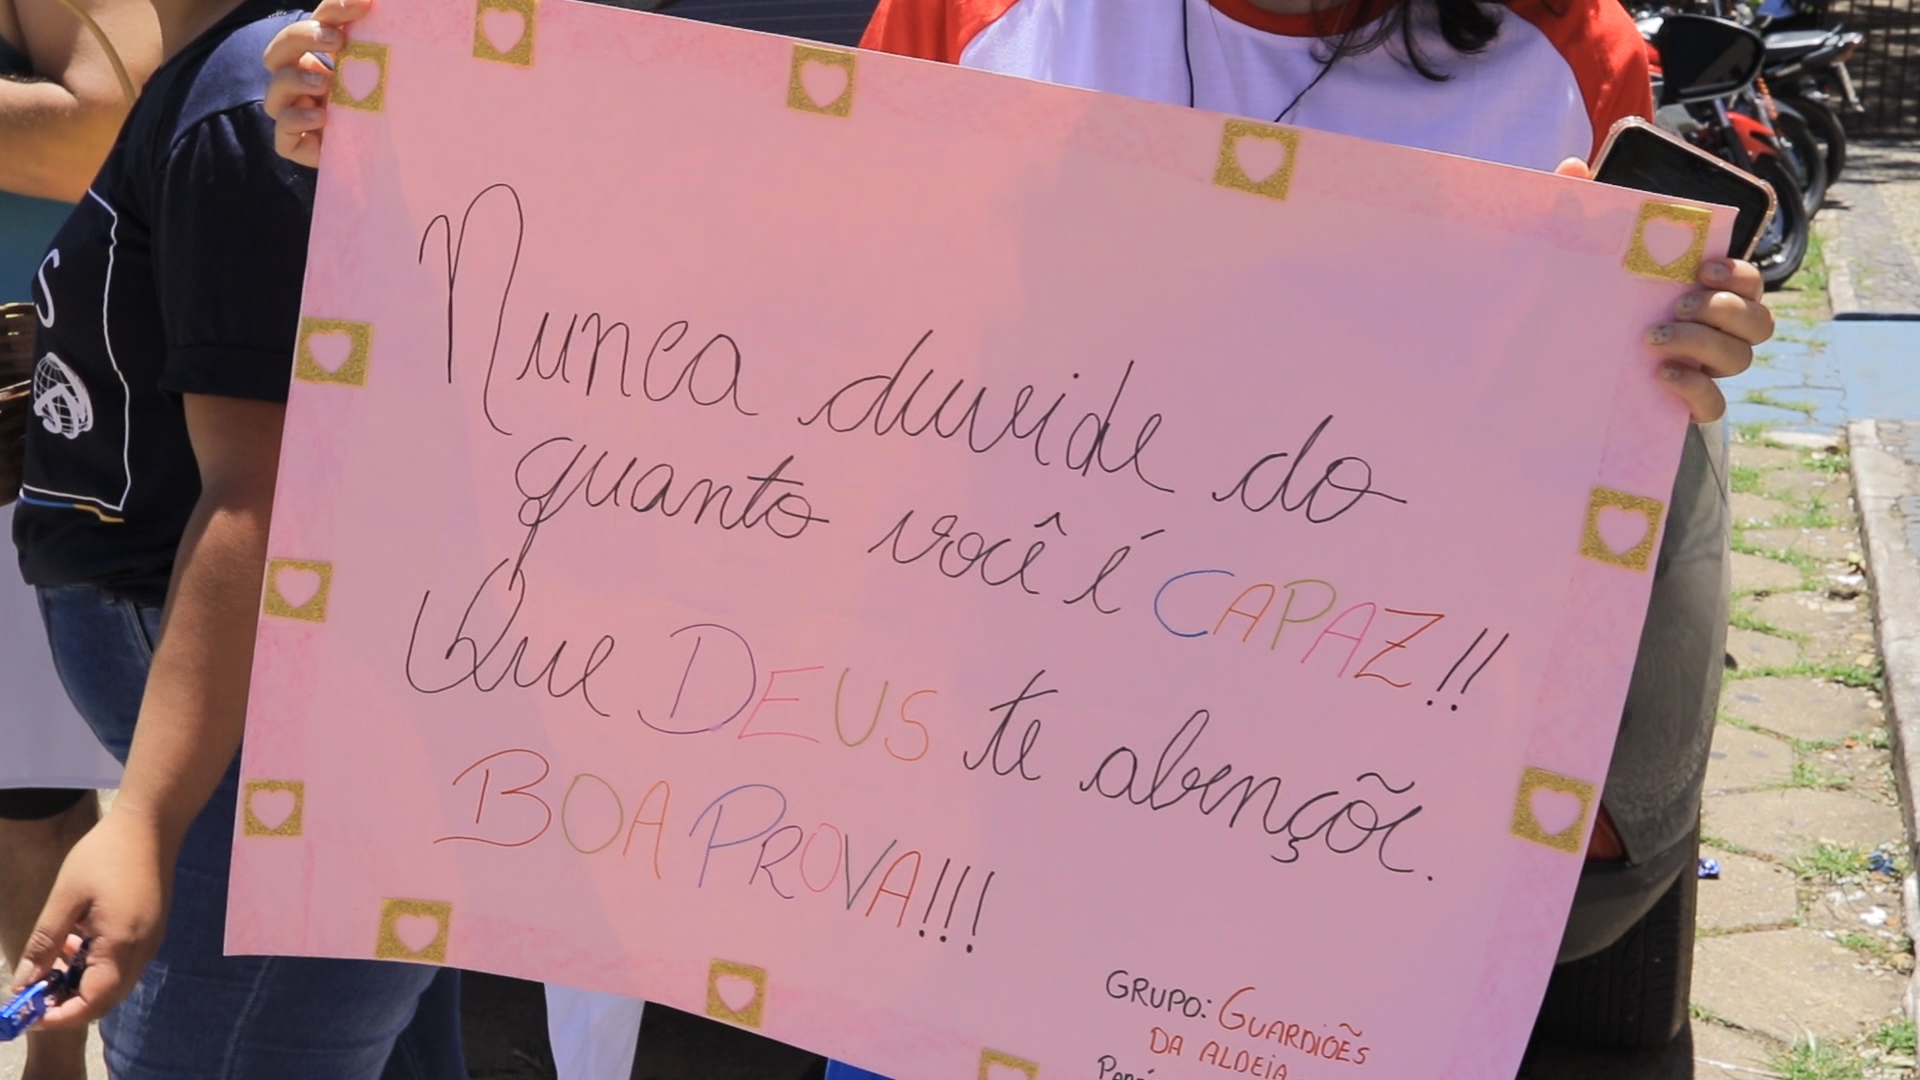 Nunca duvide do
quanto você é CAPAZ!!
Que DEUS te abençõe.
BOA PROVA!!!
GRUPO: GUARDIÕES
DA ALDEIA